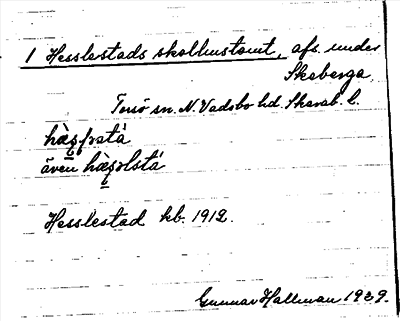 1 Hesslestads skolhustomt, afs. under
Skeberga,
Torsö sn. N. Vadsbo hd. Skarab. l.
hæ̀ʂʂstá
även hæ̀ʂʂlstá
Hesslestad kb. 1912.
Gunnar Hallman 1929.